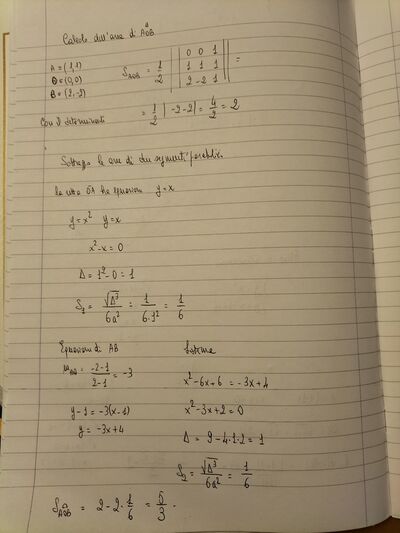 Calcolo dell'area di AÔB
A = (1,1)
O = (0,0)
B = (2,-2)
S_AOB = 1/2 || 0 0 1 | 1 1 1 | 2 -2 1 || =
Con il determinante
= 1/2 |-2-2| = 4/2 = 2
Sottraggo le aree di due segmenti parabolici.
la retta OA ha equazione y=x
y=x² y=x
x²-x=0
Δ=1²-0=1
S₁ = √Δ³/6a² = 1/6·1² = 1/6
Equazione di AB
m_AB = -2-1/2-1 = -3
y-1=-3(x-1)
y=-3x+4
Sistema
x²-6x+6=-3x+4
x²-3x+2=0
Δ=9-4·1·2=1
S₂ = √Δ³/6a² = 1/6
S_AOB = 2-2·1/6 = 5/3.